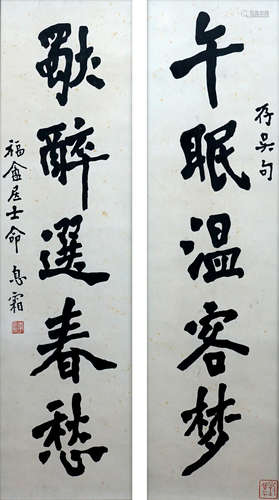 午眠温客梦
存吴句
獨醉選春愁
福盦居士命 息霜